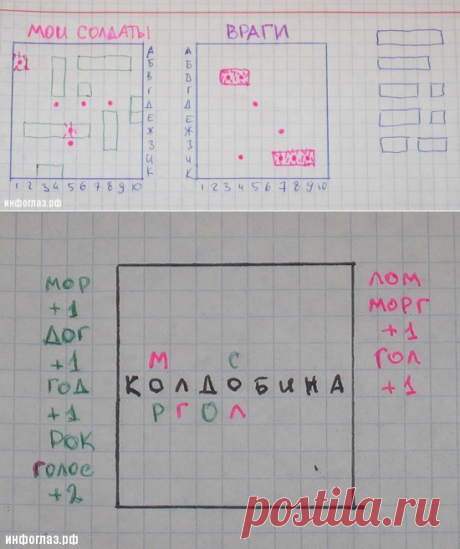 МОИ СОЛДАТЫ
А
Б
В
Г
Д
Е
Ж
З
И
К
1 2 3 4 5 6 7 8 9 10
ВРАГИ
А
Б
В
Г
Д
Е
Ж
З
И
К
1 2 3 4 5 6 7 8 9 10
инфоглаз.рф
МОР
+1
ДОГ
+1
ГОД
+1
РОК
ГОЛОС
+2
М С
КОЛДОБИНА
Р Г О Л
ЛОМ
МОРГ
+1
ГОЛ
+1
инфоглаз.рф
postila.ru